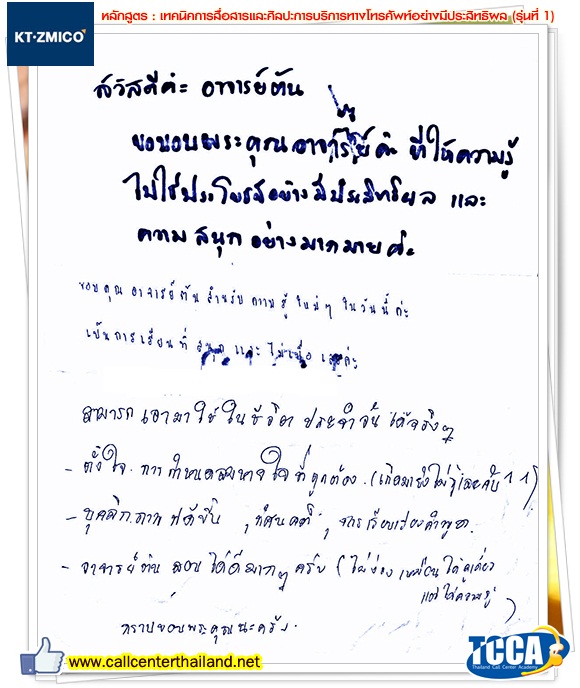 หลักสูตร : เทคนิคการสื่อสารและศิลปะการบริการทางโทรศัพท์อย่างมีประสิทธิผล (รุ่นที่ 1)
KT·ZMICO
สวัสดีค่ะ อาจารย์ตัน
ขอขอบพระคุณอาจารย์ค่ะ ที่ให้ความรู้
ไปใช้ประโยชน์อย่างมีประสิทธิผล และ
ความสนุกอย่างมากมายค่ะ
ขอบคุณ อาจารย์ตัน สำหรับ ความรู้ ใหม่ๆ ในวันนี้ค่ะ
เป็นการเรียนที่ สนุก และ ไม่เบื่อ เลยค่ะ
สามารถเอามาใช้ในชีวิตประจำวันได้จริงๆ
- ตั้งใจ. การกำหนดลมหายใจที่ถูกต้อง.
- บุคลิกภาพ , ทัศนคติ , การเรียบเรียงคำพูด.
- อาจารย์ตัน สอนได้ดีมากๆ ครับ ( เหมือน เดี่ยว
แต่ได้ความรู้ )
กราบขอบพระคุณนะครับ.
www.callcenterthailand.net
TCCA
Thailand Call Center Academy